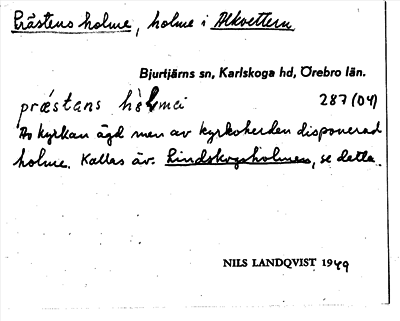 Prästens holme, holme i Alkvettern
Bjurtjärns sn, Karlskoga hd, Örebro län.
præstans hòlmɛi 287 (04)
Av kyrkan ägd men av kyrkoherden disponerad
holme. Kallas äv. Lindskogsholmen, se detta.
NILS LANDQVIST 1949